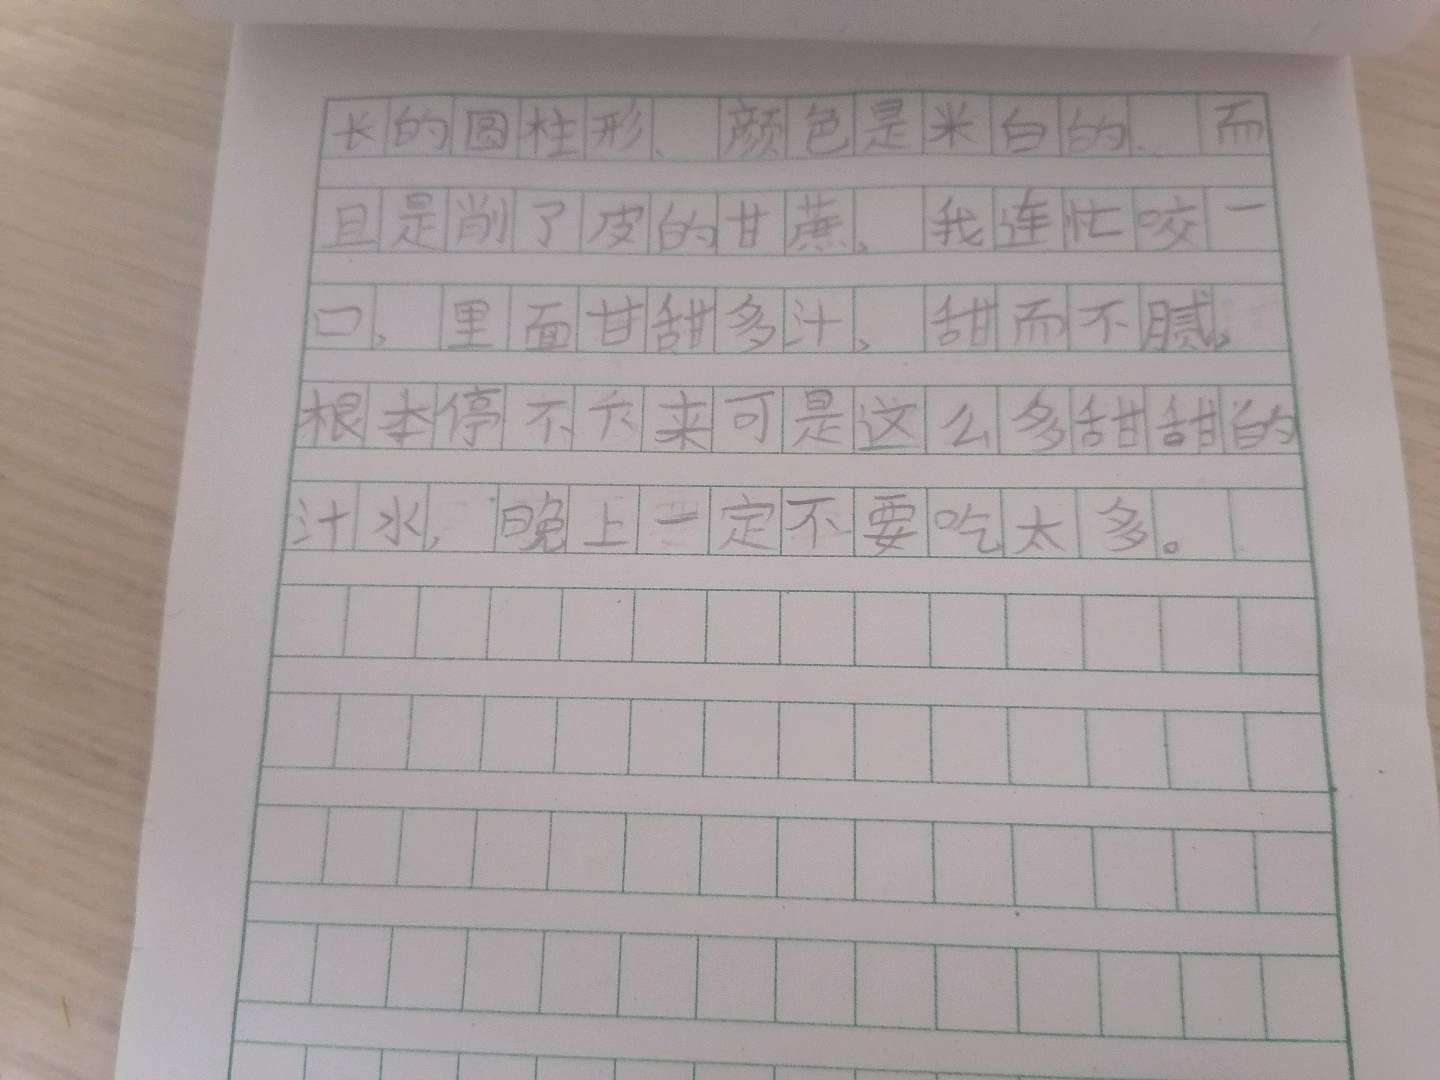 长的圆柱形、颜色是米白的、而
且是削了皮的甘蔗，我连忙咬一
口，里面甘甜多汁，甜而不腻，
根本停不下来可是这么多甜甜的
汁水，晚上一定不要吃太多。